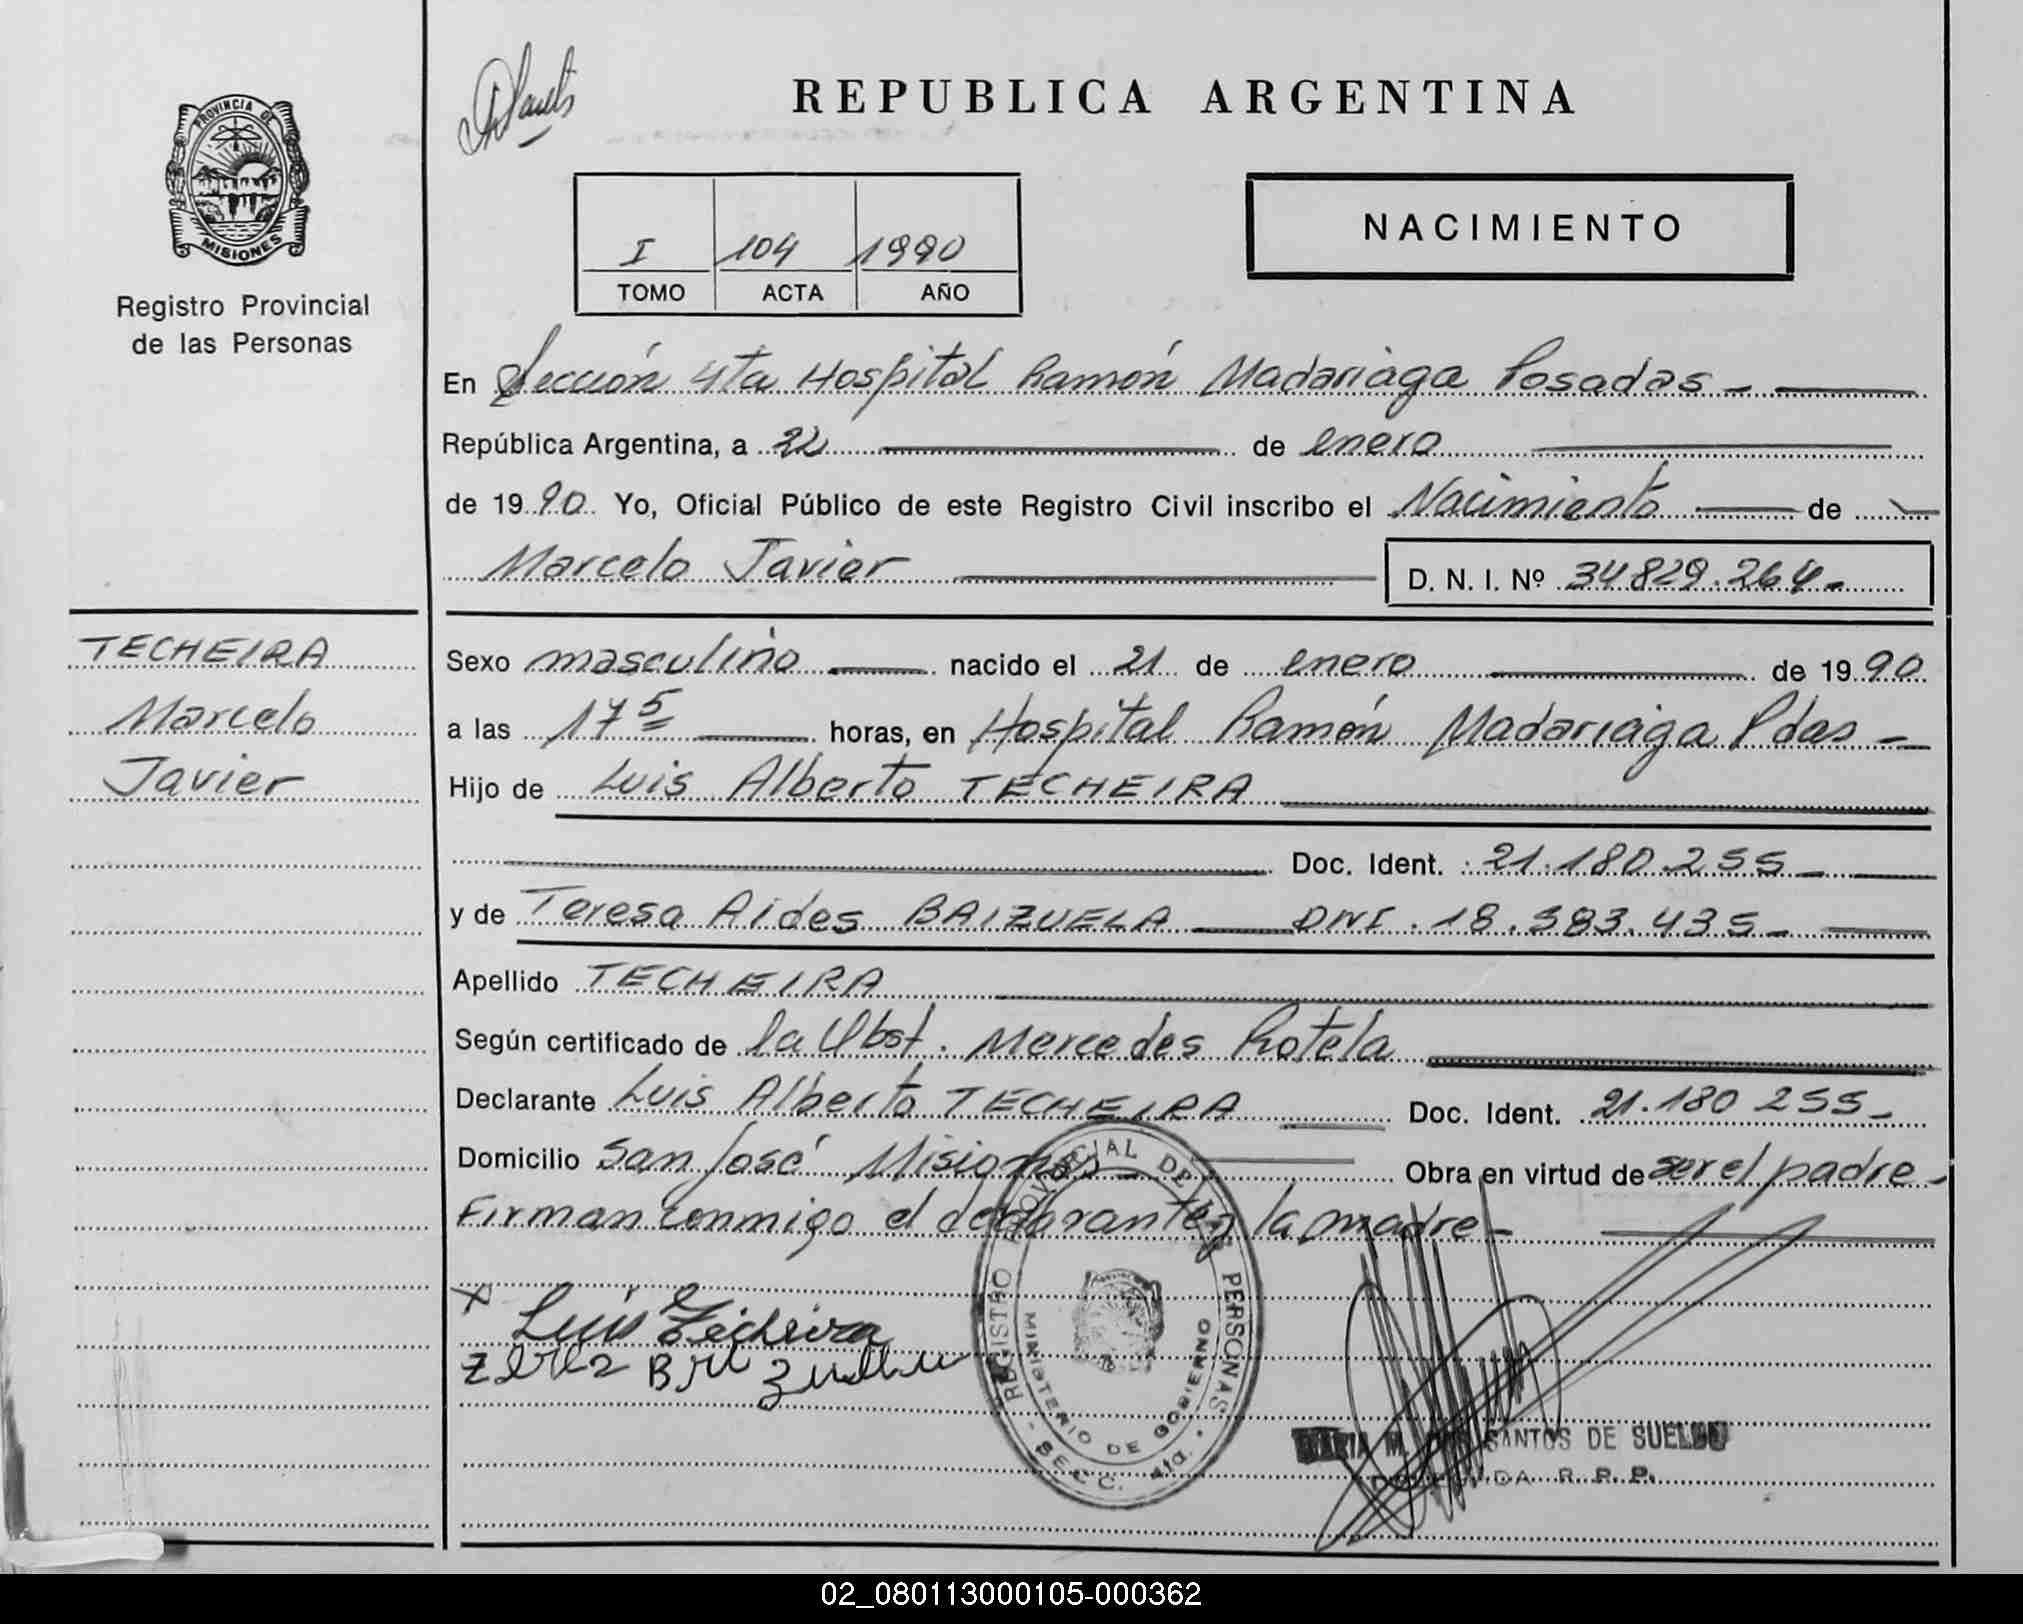 PROVINCIA DE
MISIONES
Registro Provincial
de las Personas
REPUBLICA ARGENTINA
NACIMIENTO
I 104 1990
TOMO ACTA AÑO
En Sección 4ta Hospital Ramón Madariaga Posadas
República Argentina, a 22 de enero
de 1990 Yo, Oficial Público de este Registro Civil inscribo el Nacimiento de
Marcelo Javier D. N. I. Nº 34.829.264
TECHEIRA
Marcelo
Javier
Sexo masculino nacido el 21 de enero de 1990
a las 17 5 horas, en Hospital Ramón Madariaga Pdas
Hijo de Luis Alberto TECHEIRA
Doc. Ident. 21.180.255
y de Teresa Aides BAIZUELA DNI. 18.383.435
Apellido TECHEIRA
Según certificado de la Obst. Mercedes Rotela
Declarante Luis Alberto TECHEIRA Doc. Ident. 21.180 255
Domicilio San José Misiones Obra en virtud de ser el padre
Firman conmigo el declarante y la madre
Luis Techeira
REGISTRO PROVINCIAL DE LAS PERSONAS
MINISTERIO DE GOBIERNO
SECC. 4ta.
MARIA M. DOS SANTOS DE SUELDO
R. P. P.
02_080113000105-000362